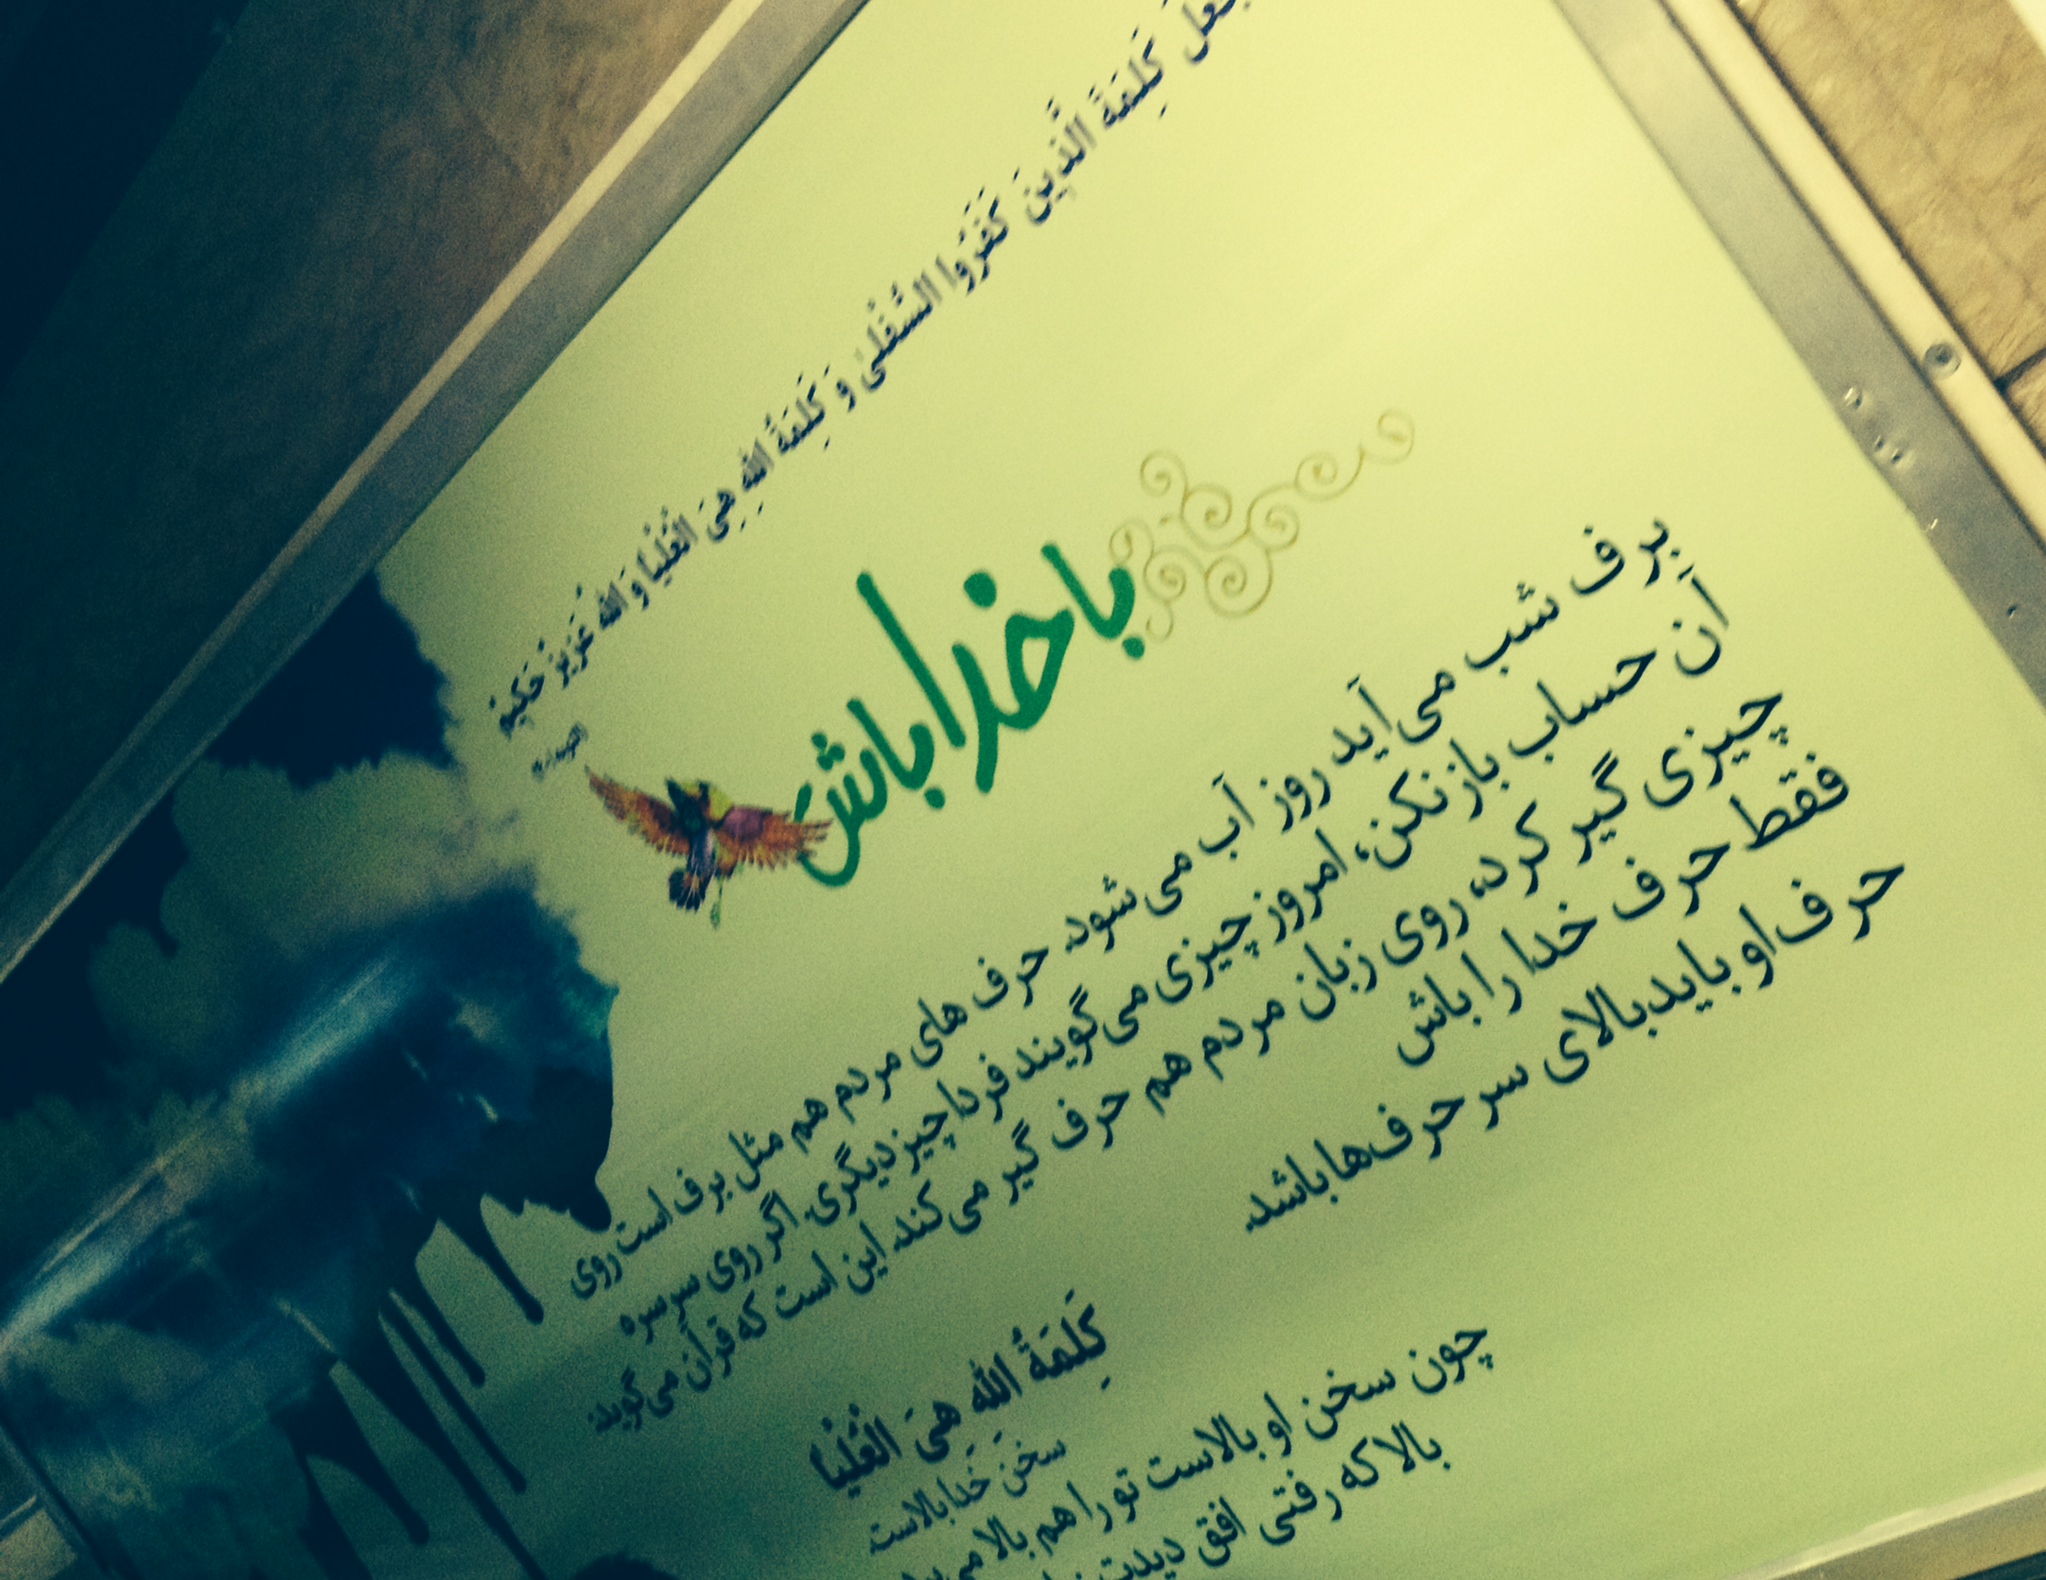 جَعَلَ كَلِمَةَ الَّذِينَ كَفَرُوا السُّفْلَىٰ وَ كَلِمَةُ اللهِ هِيَ الْعُلْيَا وَ اللهُ عَزِيزٌ حَكِيمٌ
با خدا باش
برف شب می‌آید روز آب می‌شود. حرف های مردم هم مثل برف است روی
آن حساب باز نکن، امروز چیزی می‌گویند فردا چیز دیگری. اگر روی سرسره
چیزی گیر کرد، روی زبان مردم هم حرف گیر می‌کند. این است که قرآن می‌گوید:
فقط حرف خدا را باش
حرف او باید بالای سر حرف‌ها باشد.
كَلِمَةُ اللهِ هِيَ الْعُلْيَا
سخن خدا بالاست.
چون سخن او بالاست تو را هم بالا
بالا که رفتی افق دیدت